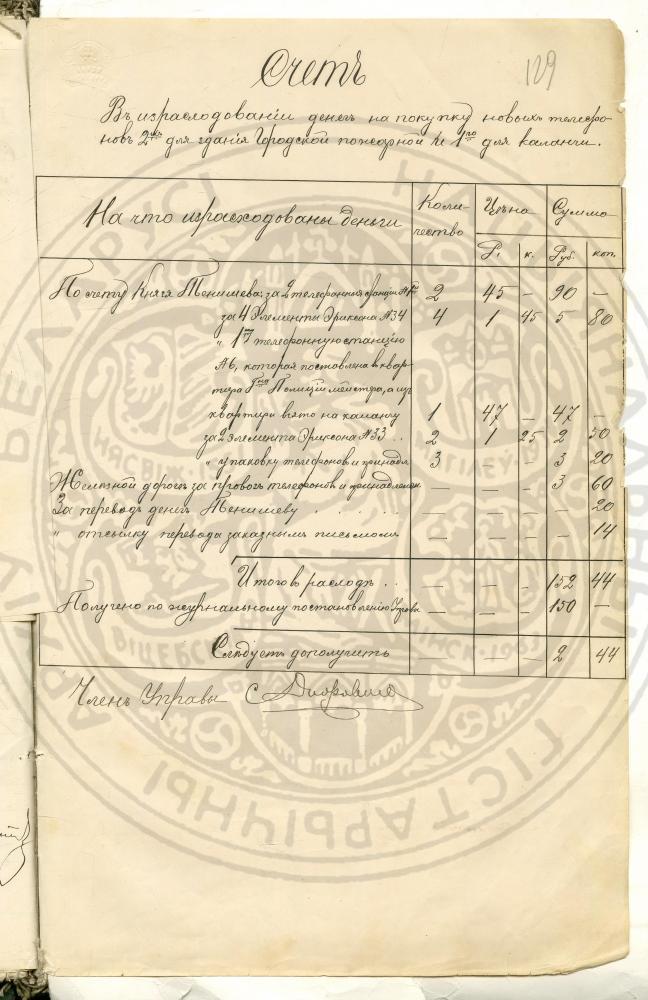 129
Счетъ
Въ израсходованіи денегъ на покупку новыхъ телефо-
новъ 2хъ для зданія Городской пожарной и 1го для каланчи.
На что израсходованы деньги
Коли-
чество
Цѣна
Сумма
Р.
к.
Руб.
коп.
По счету Князя Тенишева: за 2 телефонныя станціи 2 45 — 90 —
за 4 Элементы Эриксона №34 4 1 45 5 80
" 1 телефонную станцію
№6, которая поставлена въ квар-
тирѣ Гна Полицiймейстера, а изъ
квартиры взято на каланчу 1 47 — 47 —
за 2 элемента Эриксона №33 . . 2 1 25 2 50
" упаковку телефоновъ и принадл. 3 — — 3 20
Желѣзной дорогѣ за провозъ телефоновъ и принадлежн. — — — 3 60
За переводъ денегъ Тенишеву . . . . . — — — — 20
" отсылку перевода заказнымъ письмомъ — — — — 14
Итого въ расходѣ . . — — — 152 44
Получено по журнальному постановленію Управы — — — 150 —
Слѣдуетъ дополучить — — 2 44
Членъ Управы С
НАЦЫЯНАЛЬНЫ ГІСТАРЫЧНЫ АРХІЎ БЕЛАРУСІ